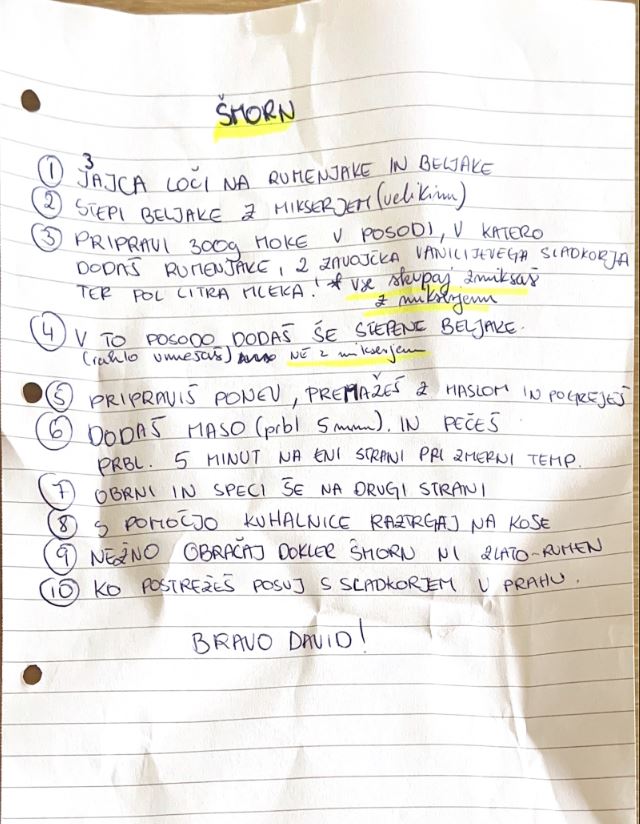 ŠMORN
① 3 JAJCA LOČI NA RUMENJAKE IN BELJAKE
② STEPI BELJAKE Z MIKSERJEM (velikim)
③ PRIPRAVI 300g MOKE V POSODI, V KATERO
DODAŠ RUMENJAKE, 2 ZAVOJČKA VANILIJEVEGA SLADKORJA
TER POL LITRA MLEKA! * vse skupaj zmiksaš
z mikserjem
④ V TO POSODO DODAŠ ŠE STEPENE BELJAKE.
(rahlo umešaš) NE z mikserjem
⑤ PRIPRAVIŠ PONEV, PREMAŽEŠ Z MASLOM IN POGREJEŠ
⑥ DODAŠ MASO (prbl 5mm). IN PEČEŠ
PRBL. 5 MINUT NA ENI STRANI PRI ZMERNI TEMP.
⑦ OBRNI IN SPECI ŠE NA DRUGI STRANI
⑧ S POMOČJO KUHALNICE RAZTRGAJ NA KOSE
⑨ NEŽNO OBRAČAJ DOKLER ŠMORN NI ZLATO-RUMEN
⑩ KO POSTREŽEŠ POSUJ S SLADKORJEM V PRAHU.
BRAVO DAVID!